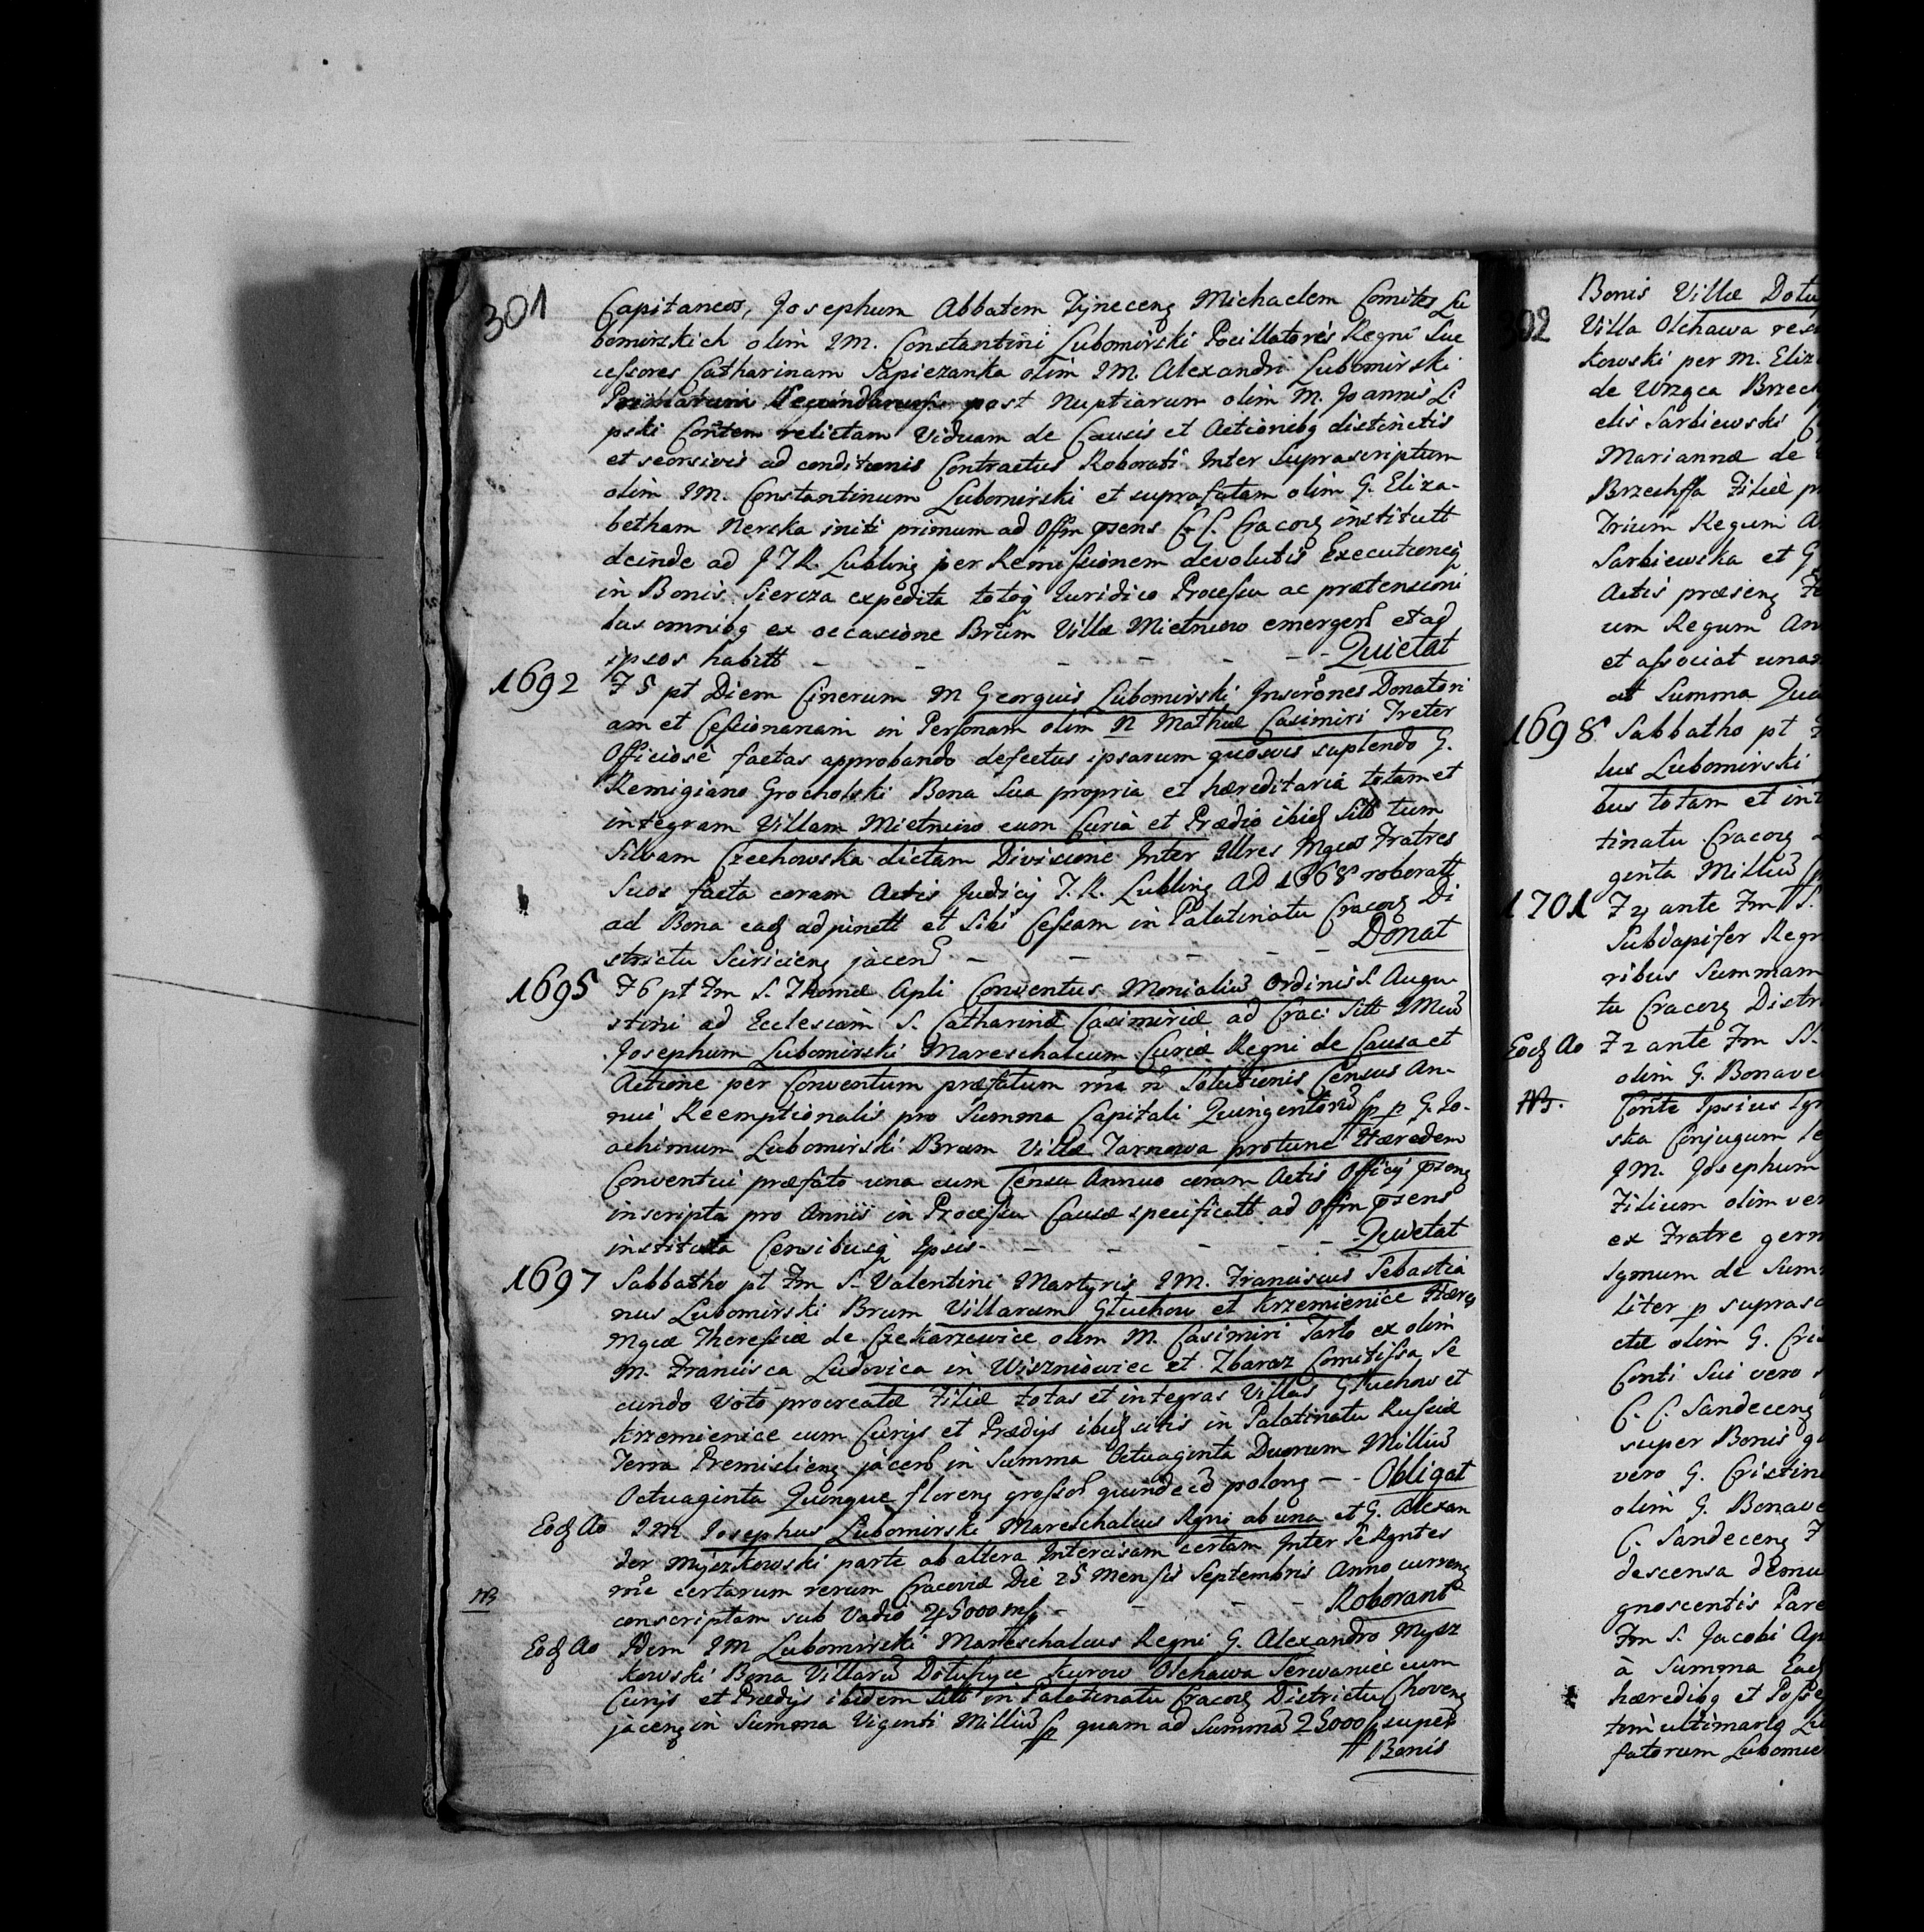 301
Capitaneos, Josephum Abbatem Tynecens Michaelem Comites Lu
bomirskich olim IM. Constantini Lubomirski Pocillatoris Regni Suc
cessores Catharinam Sapiezanka olim IM. Alexandri Lubomirski
Primarum Secundarum post Nuptiarum olim M. Joannis Li
pski Contem relictam Viduam de Causis et Actionibg distinctis
et seorsivis ad conditionis Contractus Roborati Inter Suprascriptum
olim IM. Constantinum Lubomirski et suprafatam olim G. Eliza-
betham Nerska initi primum ad Offm psens C. C. Cracov institutt
deinde ad J T R. Lublinens per Remissionem devolutis Executioneq
in Bonis Siercza expedita totoq Iuridico Processu ac prætensioni
bus omnibg ex occasione Brum Villæ Mietniow emergen et ad
ipsos habitt - - - - - - Quietat
1692 F 5 pt Diem Cinerum M Georgius Lubomirski Inscrones Donatori
am et Cessionariam in Personam olim N Mathiæ Casimiri Treter
Officiose factas approbando defectus ipsarum quosvis suplendo G.
Remigiano Grocholski Bona Sua propria et hæreditaria totam et
integram Villam Mietniow cum Curia et Prædio ibid Sitt tum
Silvam Czechowska dictam Divisione Inter Illres Mgcos Fratres
Suos facta coram Actis Judicij T. R. Lublin AD 1668 roboratt
ad Bona ead adpinett et Sibi Cessam in Palatinatu Cracov Di
strictu Sciricien jacen - - - - Donat
1695 F 6 pt Fm S. Thomæ Apli Conventus Monialiu Ordinis S. Augu-
stini ad Ecclesiam S. Catharinæ Casimiriæ ad Crac: Sitt IMm
Josephum Lubomirski Mareschalcum Curiæ Regni de Causa et
Actione per Conventum præfatum rna n Solutionis Census An-
nui Reemptionalis pro Summa Capitali Quingentoru fp p G. Jo-
achimum Lubomirski Brum Villæ Tarnowa protunc Hæredem
Conventui præfato una cum Censu Annuo coram Actis Officij psens
inscripta pro Annis in Processu Causæ specificatt ad Offm psens
instituta Censibusq Ipsis - - - - - Quietat
1697 Sabbatho pt Fm S. Valentini Martyris IM. Franciscus Sebastia
nus Lubomirski Brum Villarum Głuchow et Krzemienice Hæres
Mgcæ Theressiæ de Czekarzewice olim M. Casimiri Tarło ex olim
M. Francisca Ludovica in Wiszniowiec et Zbaraz Comitissa Se
cundo Voto procreatæ Filiæ totas et integras Villas Głuchow et
Krzemienice cum Curijs et Prædijs ibid sitis in Palatinatu Russiæ
Terra Premislien jacen in Summa Octuaginta Duorum Milliu
Octuaginta Quinque floren grossor quindeci polong - - Obligat
Eod Ao IM Josephus Lubomirski Mareschalcus Rgni ab una et G. Alexan
der Myszkowski parte ab altera Intercisam certam Inter Se Rgntes
rne certarum rerum Cracoviæ Die 25 Mensis Septembris Anno curren
NB conscriptam sub Vadio 45000 mp - - - - Roborant
Eod Ao Idem IM Lubomirski Mareschalcus Regni G. Alexandro Mysz
kowski Bona Villaru Dotuszyce Kurow Olchawa Serwaniec cum
Curijs et Prædijs ibidem Sitt in Palatinatu Cracov Districtu Choven
jacen in Summa Viginti Milliu fp quam ad Summa 25000 fp super
Bonis
302
Bonis Villæ Dotu
Villa Olchawa res
kowski per M. Eliz
de Wrząca Brzech
elis Sarbiewski
Mariannæ de
Brzechffa Filiæ p
Trium Regum A
Sarbiewska et G
Actis præsens F
um Regum An
et associat una
at Summa Qua
1698 Sabbatho pt
lus Lubomirski
bus totam et int
tinatu Cracov
genta Milliu
1701 F 4 ante Fm S.
Subdapifer Regn
ribus Summam
tu Cracov Distr
Eod Ao F 2 ante Fm SS.
olim G. Bonave
NB. Conte Ipsius Ig
ska Conjugum
IM. Josephum
Filium olim ve
ex Fratre germ
Symum de Sum
liter p suprasc
cta olim G. Cri
Conti Sui vero
C. C. Sandecens
super Bonis
vero G. Cristin
olim G. Bonave
C. Sandecens F
descensa demu
gnoscentis Pare
Fm S. Jacobi Ap
à Summa Ead
hæredibg et Posse
tom ultimarg Lu
fatorum Lubomir